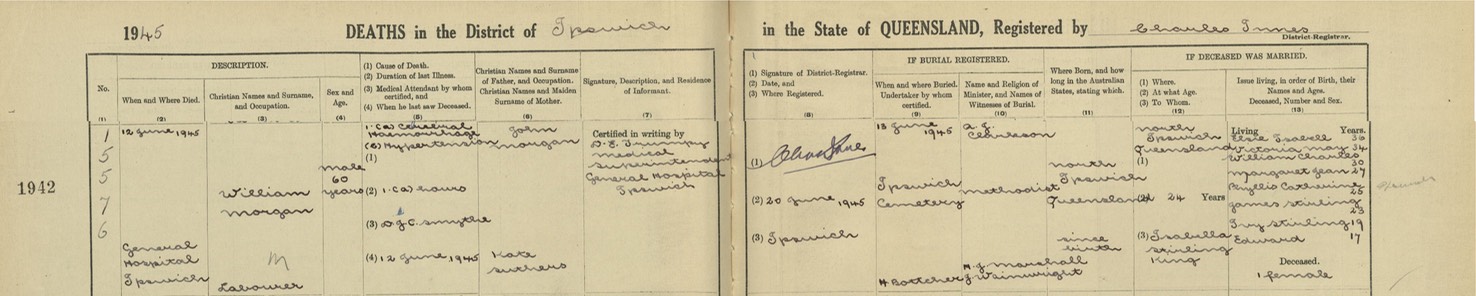 1945 DEATHS in the District of Ipswich in the State of QUEENSLAND, Registered by Charles Innes
District-Registrar.
DESCRIPTION.
No.
(1)
When and Where Died.
(2)
Christian Names and Surname, and Occupation.
(3)
Sex and Age.
(4)
(1) Cause of Death.
(2) Duration of last Illness.
(3) Medical Attendant by whom certified, and
(4) When he last saw Deceased.
(5)
Christian Names and Surname of Father, and Occupation.
Christian Names and Maiden Surname of Mother.
(6)
Signature, Description, and Residence of Informant.
(7)
(1) Signature of District-Registrar.
(2) Date, and
(3) Where Registered.
(8)
IF BURIAL REGISTERED.
When and where Buried. Undertaker by whom certified.
(9)
Name and Religion of Minister, and Names of Witnesses of Burial.
(10)
Where Born, and how long in the Australian States, stating which.
(11)
IF DECEASED WAS MARRIED.
(1) Where.
(2) At what Age.
(3) To Whom.
(12)
Issue living, in order of Birth, their Names and Ages.
Deceased, Number and Sex.
(13)
1942
1
5
5
7
6
12 June 1945
General
Hospital
Ipswich
William
Morgan
M
Labourer
male
60
years
1. (a) Cerebral
Haemorrhage
(b) Hypertension
(1)
(2) 1. (a) hours
(3) D.J.C. Smythe
(4) 12 June 1945
John
Morgan
Kate
Suthers
Certified in writing by
D. E. Trumpy
medical
superintendent
General Hospital
Ipswich
(1) Chas Innes
(2) 20 June 1945
(3) Ipswich
13 June
1945
Ipswich
Cemetery
H Bottcher
A. J.
Clarkson
methodist
H. J. Marshall
J Wainwright
north
Ipswich
Queensland
since
birth
north
Ipswich
Queensland
(1)
(2) 24 Years
(3) Isabella
Stirling
King
Living Years.
Elsie Isabell 36
Victoria May 34
William Charles
30
Margaret Jean 27
Phyllis Catherine
25
James Stirling
23
Ivy Stirling 19
Edward 17
Deceased.
1 female